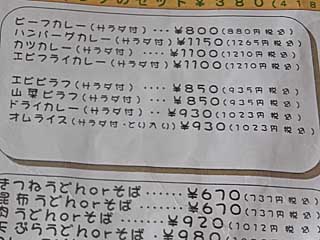 のセット ¥380(418
ビーフカレー(サラダ付)‥‥¥800(880円 税込)
ハンバーグカレー(サラダ付)¥1150(1265円 税込)
カツカレー(サラダ付)‥‥¥1100(1210円 税込)
エビフライカレー(サラダ付)‥¥1100(1210円 税込)
エビピラフ(サラダ付)‥‥¥850(935円 税込)
山菜ピラフ(サラダ付)‥‥¥850(935円 税込)
ドライカレー(サラダ付)‥¥930(1023円 税込)
オムライス(サラダ付・とり入り)¥930(1023円 税込)
きつねうどんorそば‥‥‥¥670(737円 税込)
昆布うどんorそば‥‥‥¥670(737円 税込)
肉うどんorそば‥‥‥¥920(1012円 税込)
天ぷらうどんorそば‥‥¥980